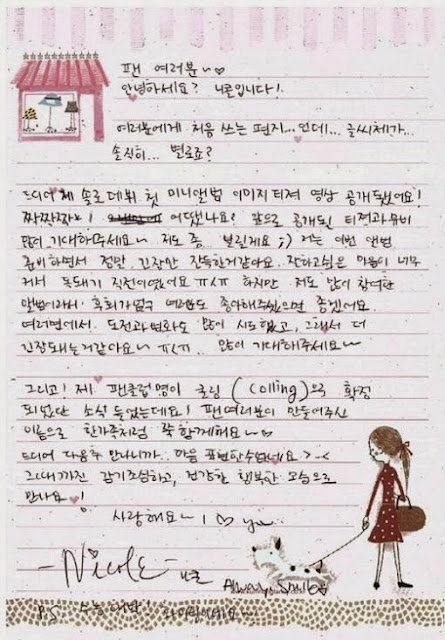 팬 여러분~♡
안녕하세요? 니콜입니다!
여러분에게 처음 쓰는 편지...인데... 글씨체가...
솔직히... 별로죠?
드디어 제 솔로데뷔 첫 미니앨범 이미지 티져 영상 공개됐어요!
짝짝짝짝! 어땠나요? 앞으로 공개될 티져과 뮤비
많이 기대해주세요~ 저도 좀 떨릴게요 ;) 저는 이번 앨범
준비하면서 정말 긴장만 잔뜩한거같아요. 잘하고싶은 마음이 너무
커서 폭퇴기 직전이였어요 ㅠㅅㅠ 하지만, 저도 많이 참여한
앨범이라서 여러분도 좋아해주셨으면 좋겠어요.
여러면에서 도전과 변화도 많이 시도했고, 그래서 더
긴장돼는거같아요~ ㅠㅅㅠ.. 많이 기대해주세요~
그리고! 제 팬클럽명이 콜링 (Colling)으로 확정
되었단 소식 들었는데요! 팬여러분이 만들어주신
이름으로 한가족처럼 쭉 함께해요~♡
드디어 다음주 만나니까.. 마음 표현한수있네요 >.<
그때까진 감기조심하고, 건강한 행복한 모습으로
만나요!
사랑해요~ I ♡ you
-Nicole- 니콜
Always Smile
P.S 수능대박! 화이팅이에요~